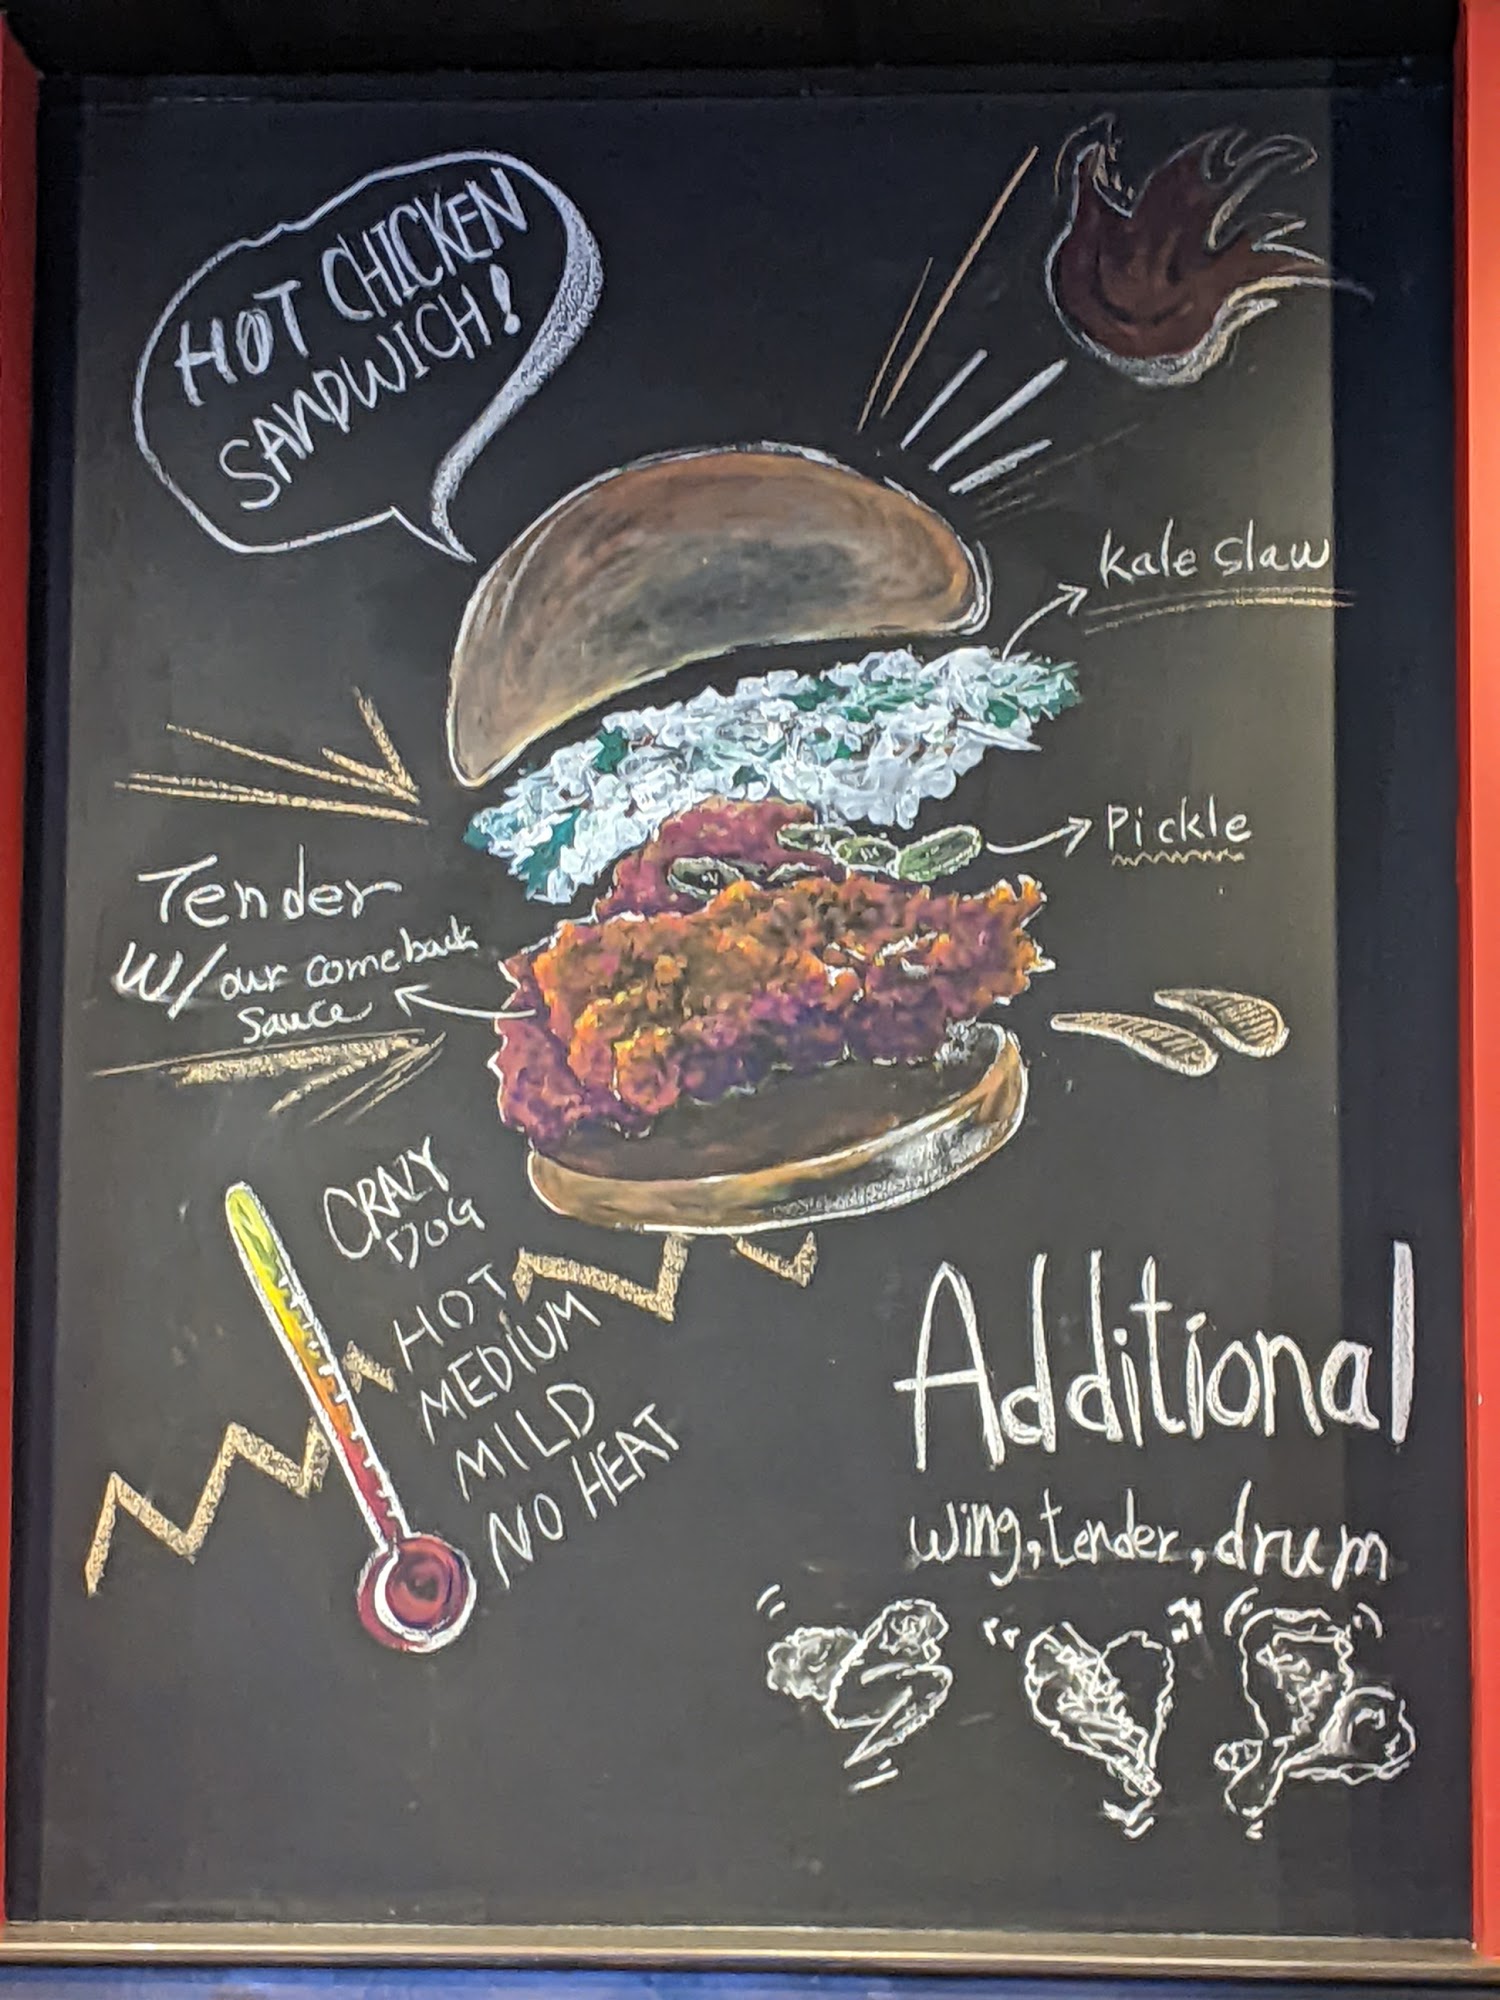 HOT CHICKEN
SANDWICH!
Kale slaw
Pickle
Tender
W/our comeback
Sauce
CRAZY
DOG
HOT
MEDIUM
MILD
NO HEAT
Additional
wing, tender, drum